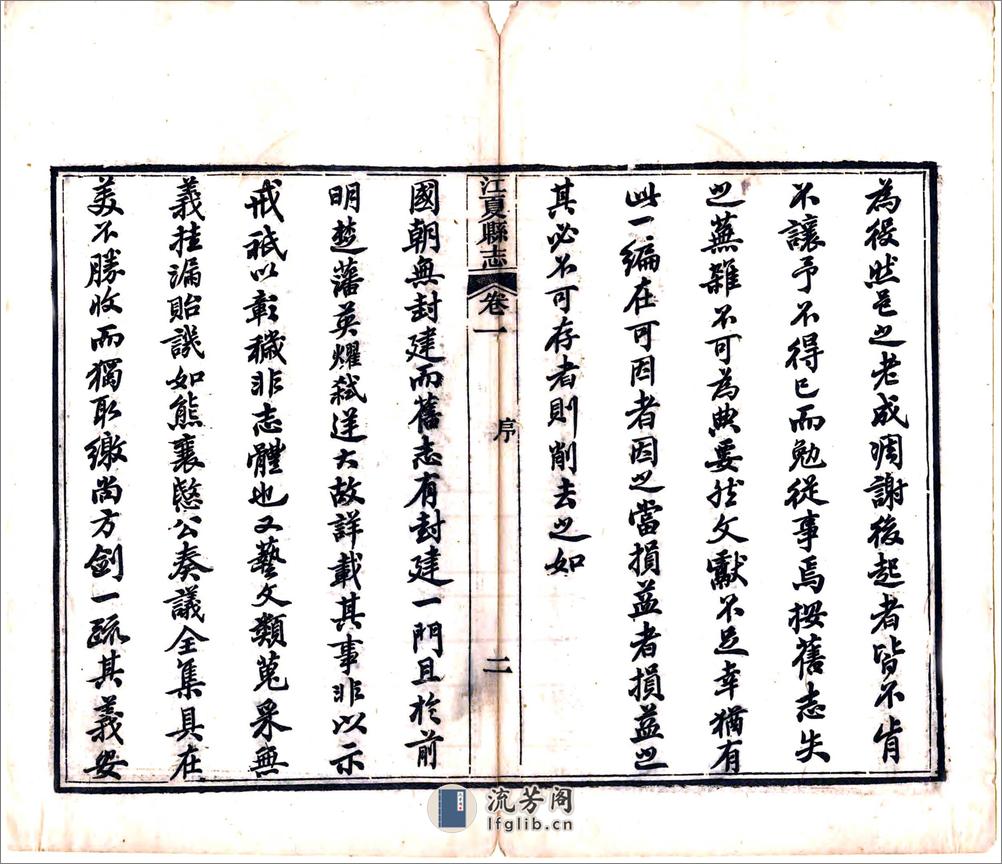 為役然邑之老成凋謝後起者皆不肯
不讓予不得已而勉從事焉按舊志失
之蕪雜不可為典要然文獻不足幸猶有
此一編在可因者因之當損益者損益之
其必不可存者則削去之如
江夏縣志 卷一 序 二
國朝無封建而舊志有封建一門且於前
明楚藩英燿弒逆大故詳載其事非以示
戒祇以彰穢非志體也又藝文類蒐采無
義挂漏貽譏如熊襄愍公奏議全集具在
美不勝收而獨取繳尚方劍一疏其義安
流芳阁
lfglib.cn